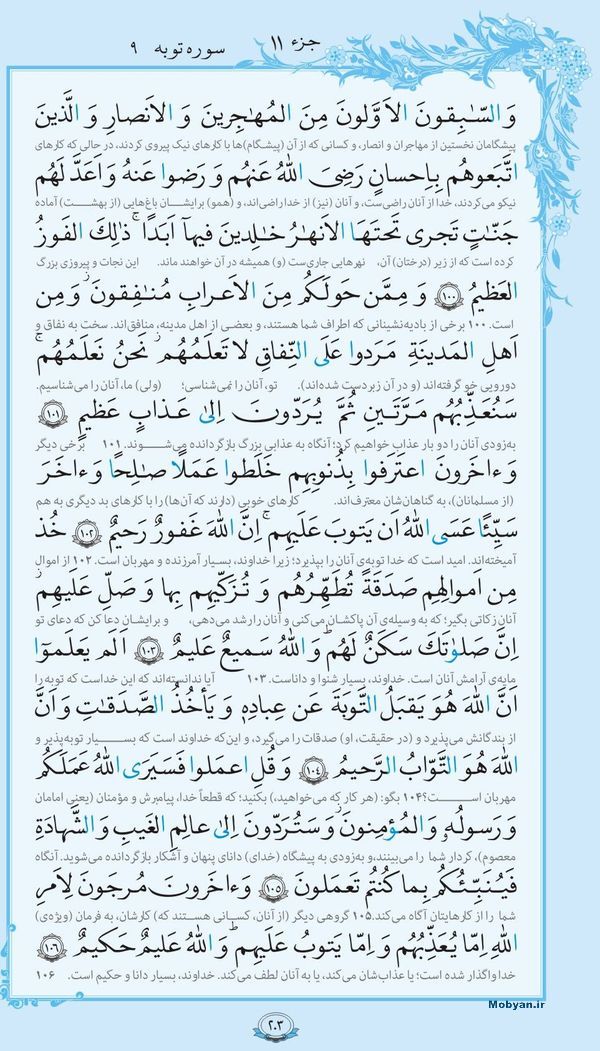 جزء ۱۱
سوره توبه ۹
وَ السّٰبِقونَ الاَوَّلونَ مِنَ المُهٰجِرینَ وَ الاَنصارِ وَ الَّذینَ
پیشگامان نخستین از مهاجران و انصار، و کسانی که از آن (پیشگام)ها با کارهای نیک پیروی کردند، در حالی که کارهای
اتَّبَعوهُم بِاِحسانٍ رَضِیَ اللهُ عَنهُم وَ رَضوا عَنهُ وَ اَعَدَّ لَهُم
نیکو می‌کردند، خدا از آنان راضی‌ست، و آنان (نیز) از خدا راضی‌اند، و (همو) برایشان باغ‌هایی (از بهشت) آماده
جَنّٰتٍ تَجری تَحتَهَا الاَنهٰرُ خٰلِدینَ فیهآ اَبَدًا ۚ ذٰلِكَ الفَوزُ
کرده است که از زیر (درختان) آن، نهرهایی جاری‌ست (و) همیشه در آن خواهند ماند. این نجات و پیروزی بزرگ
العَظیمُ ﴿۱۰۰﴾ وَ مِمَّن حَولَكُم مِنَ الاَعرابِ مُنٰفِقونَ ۖ وَ مِن
است. ۱۰۰ برخی از بادیه‌نشینانی که اطراف شما هستند، و بعضی از اهل مدینه، منافق‌اند. سخت به نفاق و
اَهلِ المَدینَةِ ۖ مَرَدوا عَلَى النِّفاقِ لا تَعلَمُهُم ۖ نَحنُ نَعلَمُهُم ۚ
دورویی خو گرفته‌اند (و در آن زبردست شده‌اند). تو، آنان را نمی‌شناسی؛ (ولی) ما، آنان را می‌شناسیم.
سَنُعَذِّبُهُم مَرَّتَینِ ثُمَّ یُرَدّونَ اِلىٰ عَذابٍ عَظیمٍ ﴿۱۰۱﴾
به‌زودی آنان را دو بار عذاب خواهیم کرد؛ آنگاه به عذابی بزرگ بازگردانده می‌شوند. ۱۰۱ برخی دیگر
وَ ءاخَرونَ اعتَرَفوا بِذُنوبِهِم خَلَطوا عَمَلًا صٰلِحًا وَ ءاخَرَ
(از مسلمانان)، به گناهان‌شان معترف‌اند. کارهای خوبی (دارند که آن‌ها) را با کارهای بد دیگری به هم
سَیِّئًا عَسَى اللهُ اَن یَتوبَ عَلَیهِم ۚ اِنَّ اللهَ غَفورٌ رَحیمٌ ﴿۱۰۲﴾ خُذ
آمیخته‌اند. امید است که خدا توبه‌ی آنان را بپذیرد؛ زیرا خداوند، بسیار آمرزنده و مهربان است. ۱۰۲ از اموال
مِن اَموالِهِم صَدَقَةً تُطَهِّرُهُم وَ تُزَكّیهِم بِها وَ صَلِّ عَلَیهِم ۖ
آنان زکاتی بگیر؛ که به وسیله‌ی آن پاکشان می‌کنی و آنان را رشد می‌دهی، و برایشان دعا کن که دعای تو
اِنَّ صَلوٰتَكَ سَكَنٌ لَهُم ۗ وَ اللهُ سَمیعٌ عَلیمٌ ﴿۱۰۳﴾ اَلَم یَعلَموٓا
مایه‌ی آرامش آنان است. خداوند، بسیار شنوا و داناست. ۱۰۳ آیا ندانسته‌اند که این خداست که توبه را
اَنَّ اللهَ هُوَ یَقبَلُ التَّوبَةَ عَن عِبادِهٖ وَ یَأخُذُ الصَّدَقاتِ وَ اَنَّ
از بندگانش می‌پذیرد و (در حقیقت، او) صدقات را می‌گیرد، و این‌که خداوند است که بسیار توبه‌پذیر و
اللهَ هُوَ التَّوّابُ الرَّحیمُ ﴿۱۰۴﴾ وَ قُلِ اعمَلوا فَسَیَرَى اللهُ عَمَلَكُم
مهربان است؟ ۱۰۴ بگو: (هر کار که می‌خواهید،) بکنید؛ که قطعاً خدا، پیامبرش و مؤمنان (یعنی امامان
وَ رَسولُهٗ وَ المُؤمِنونَ ۖ وَ سَتُرَدّونَ اِلىٰ عالِمِ الغَیبِ وَ الشَّهادَةِ
معصوم)، کردار شما را می‌بینند، و به‌زودی به پیشگاه (خدای) دانای پنهان و آشکار بازگردانده می‌شوید. آنگاه
فَیُنَبِّئُكُم بِما كُنتُم تَعمَلونَ ﴿۱۰۵﴾ وَ ءاخَرونَ مُرجَونَ لِاَمرِ
شما را از کارهایتان آگاه می‌کند. ۱۰۵ گروهی دیگر (از آنان، کسانی هستند که) کارشان، به فرمان (ویژه‌ی)
اللهِ اِمّا یُعَذِّبُهُم وَ اِمّا یَتوبُ عَلَیهِم ۗ وَ اللهُ عَلیمٌ حَكیمٌ ﴿۱۰۶﴾
خدا واگذار شده است؛ یا عذاب‌شان می‌کند، یا به آنان لطف می‌کند. خداوند، بسیار دانا و حکیم است. ۱۰۶
Mobyan.ir
۲۰۳